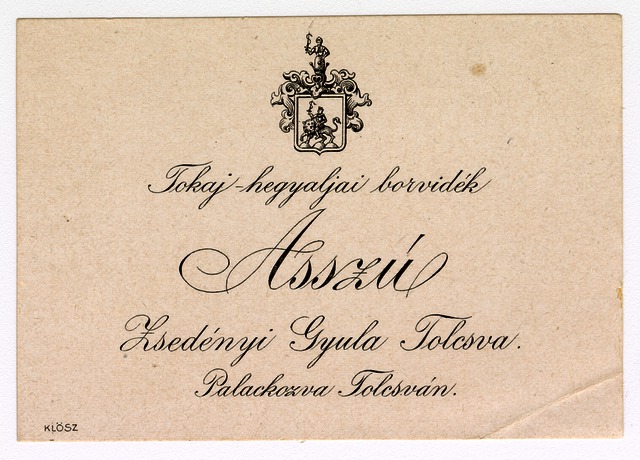 Tokaj-hegyaljai borvidék
Asszú
Zsedényi Gyula Tolcsva.
Palackozva Tolcsván.
KLÖSZ